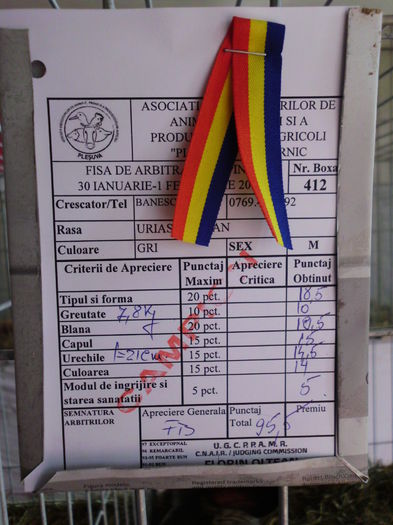 ASOCIATI RILOR DE
ANIM I SI A
PRODU GRICOLI
"PL RNIC
PLEȘUVA
FISA DE ARBITRA
Nr. Boxa
30 IANUARIE-1 FE 20
412
Crescator/Tel BANESC 0769. 92
Rasa URIAS AN
Culoare GRI SEX M
Criterii de Apreciere Punctaj Maxim Apreciere Critica Punctaj Obtinut
Tipul si forma 20 pct. 18,5
Greutate 7,8 Kg 10 pct. 10
Blana 20 pct.
Capul 15 pct. 15
Urechile 15 pct. 14,5
Culoarea 15 pct. 14
Modul de ingrijire si
starea sanatatii 5 pct. 5
CAMPION
SEMNATURA
ARBITRILOR
Apreciere Generala Punctaj Premiu
Total 95,5
97 EXCEPTIONAL
96 REMARCABIL
93-95 FOARTE BUN
U.G.C.P.P.A.M.R.
C.N.A.I.R. / JUDGING COMMISSION
FLORIN OLTEAN
Registered trademark